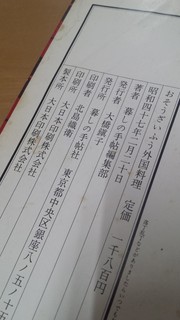 おそうざいふう外国料理
昭和四十七年二月二十日 定価 一千八百円
著者 暮しの手帖編集部
発行者 大橋鎭子
発行所 暮しの手帖社 東京都中央区銀座八ノ五ノ十五
印刷者 北島織衛
印刷所 大日本印刷株式会社
製本所 大日本印刷株式会社